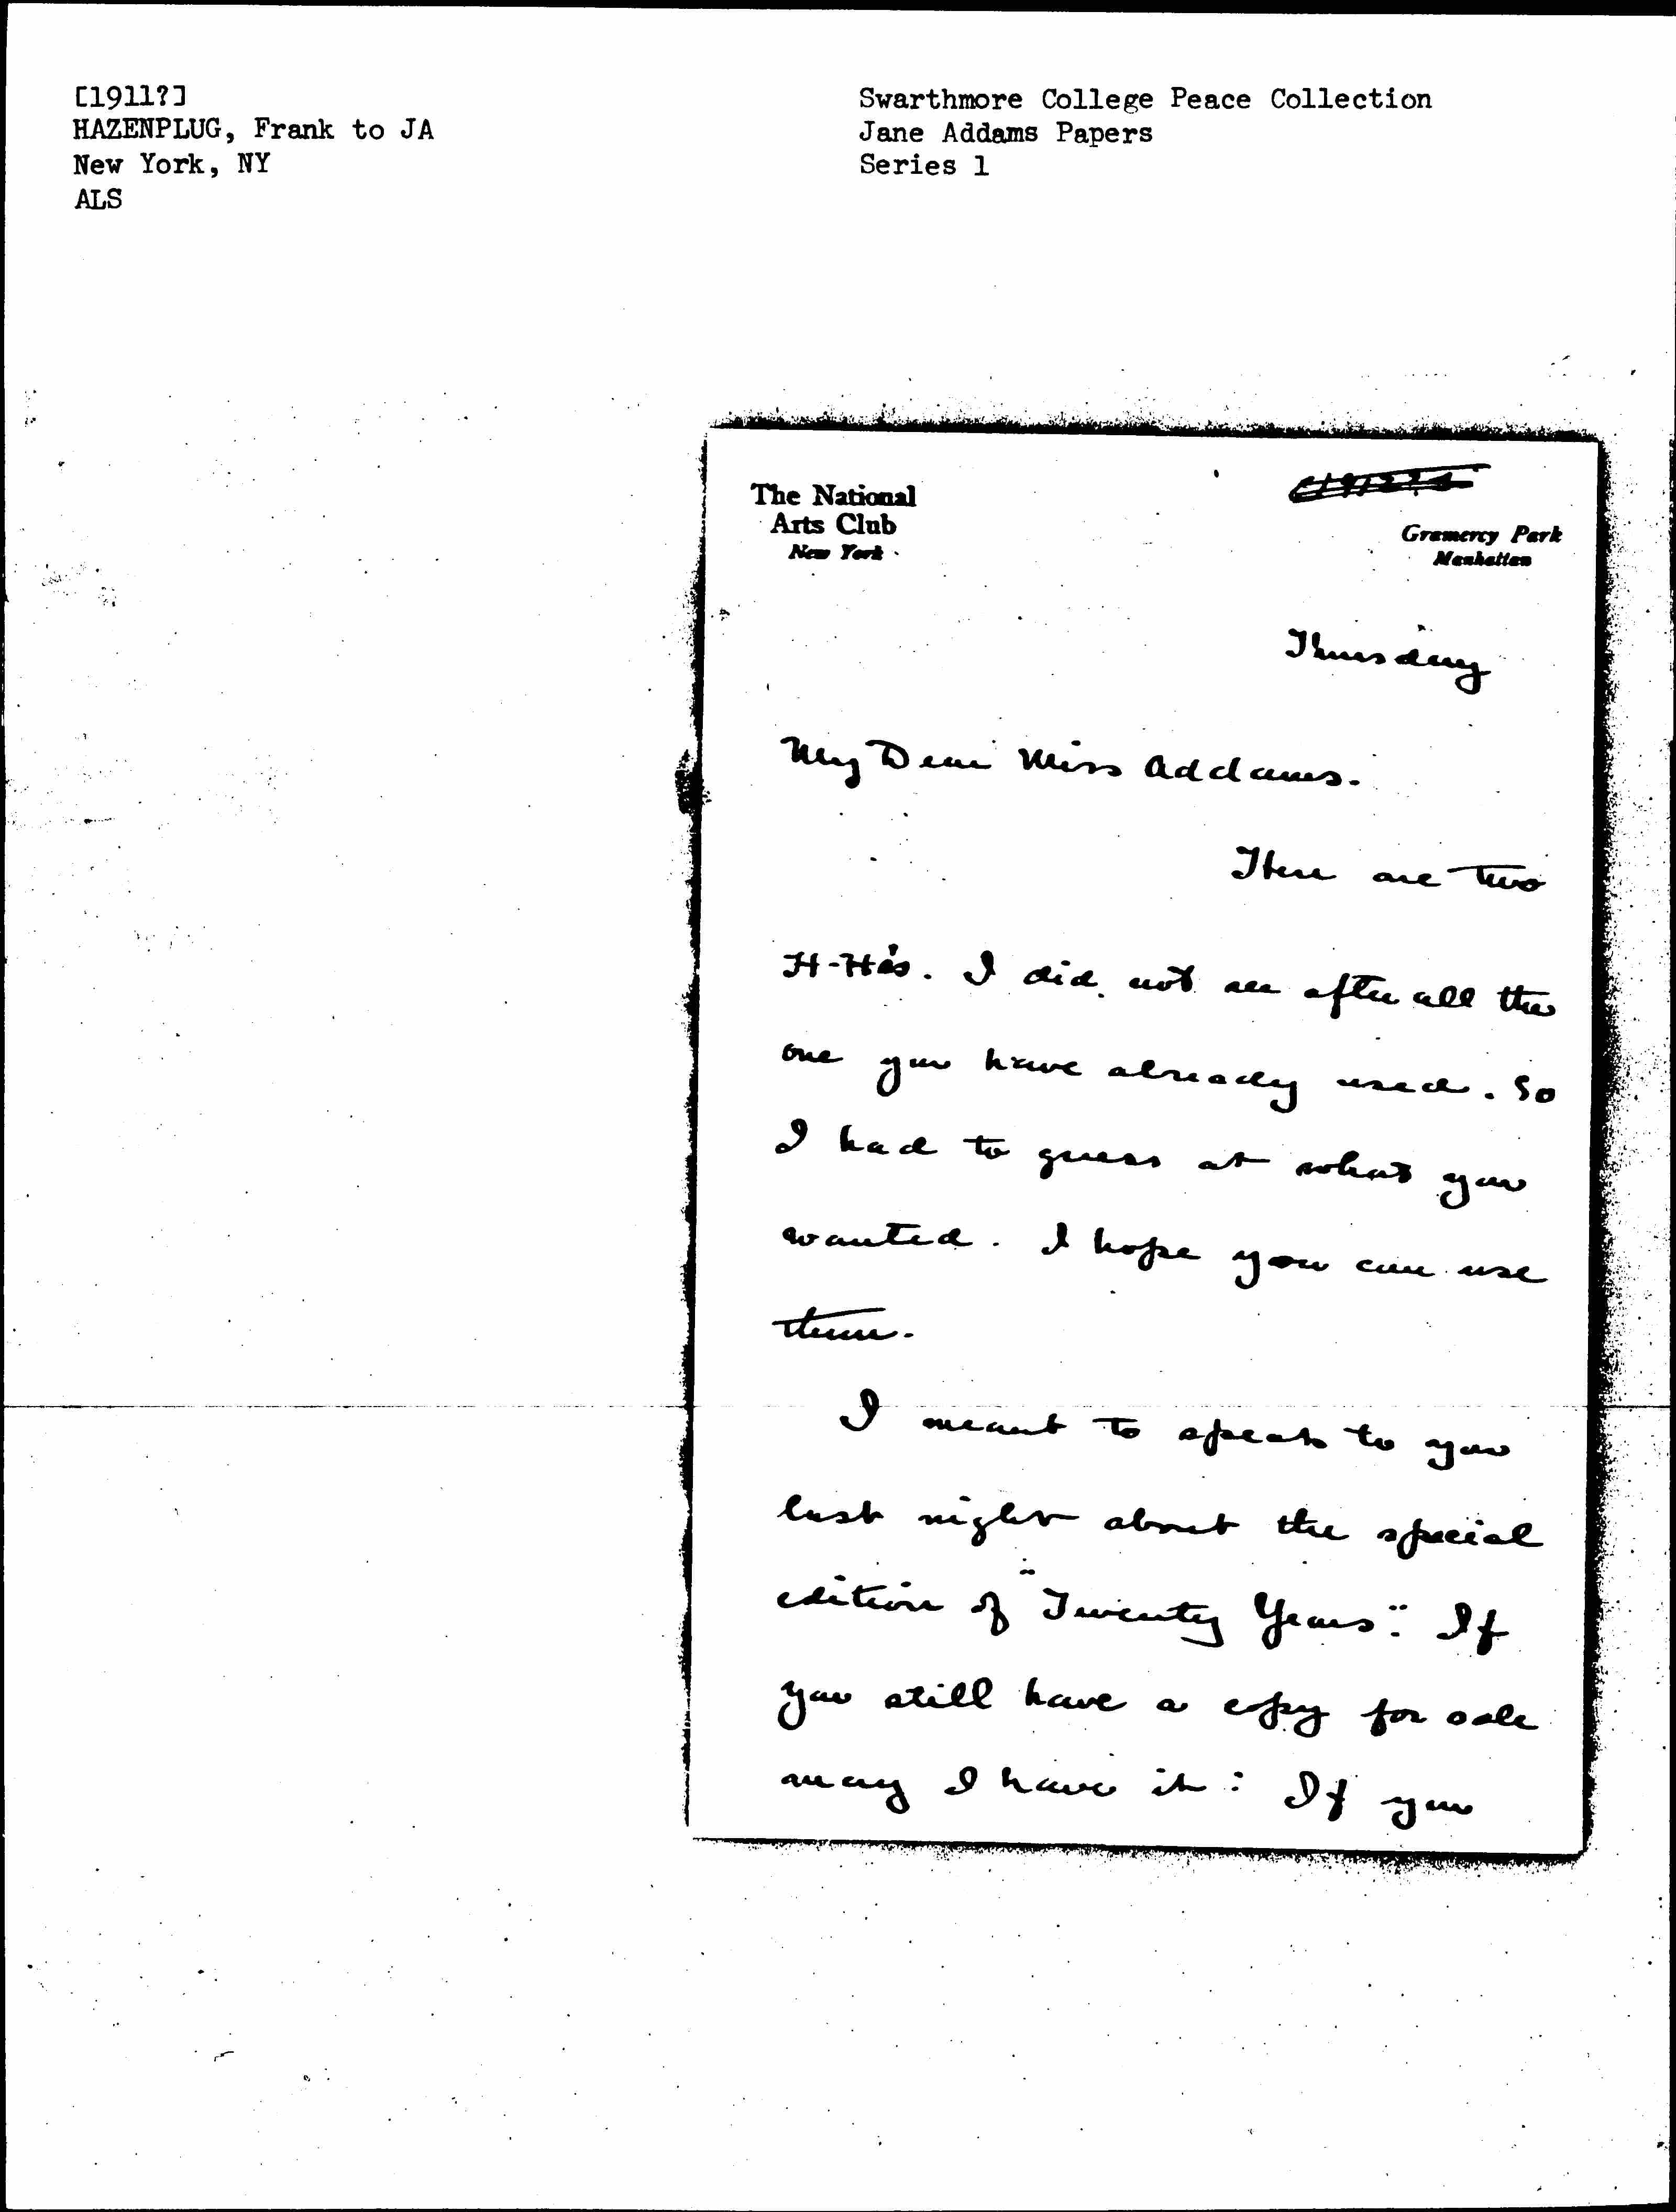 [1911?]
HAZENPLUG, Frank to JA
New York, NY
ALS
Swarthmore College Peace Collection
Jane Addams Papers
Series 1
The National
Arts Club
New York
Gramercy Park
Manhattan
Thursday
My Dear Miss Addams.
There are two
H-H's. I did not see after all the
one you have already used. So
I had to guess at what you
wanted. I hope you can use
them.
I meant to speak to you
last night about the special
edition of "Twenty Years". If
you still have a copy for sale
may I have it: If you